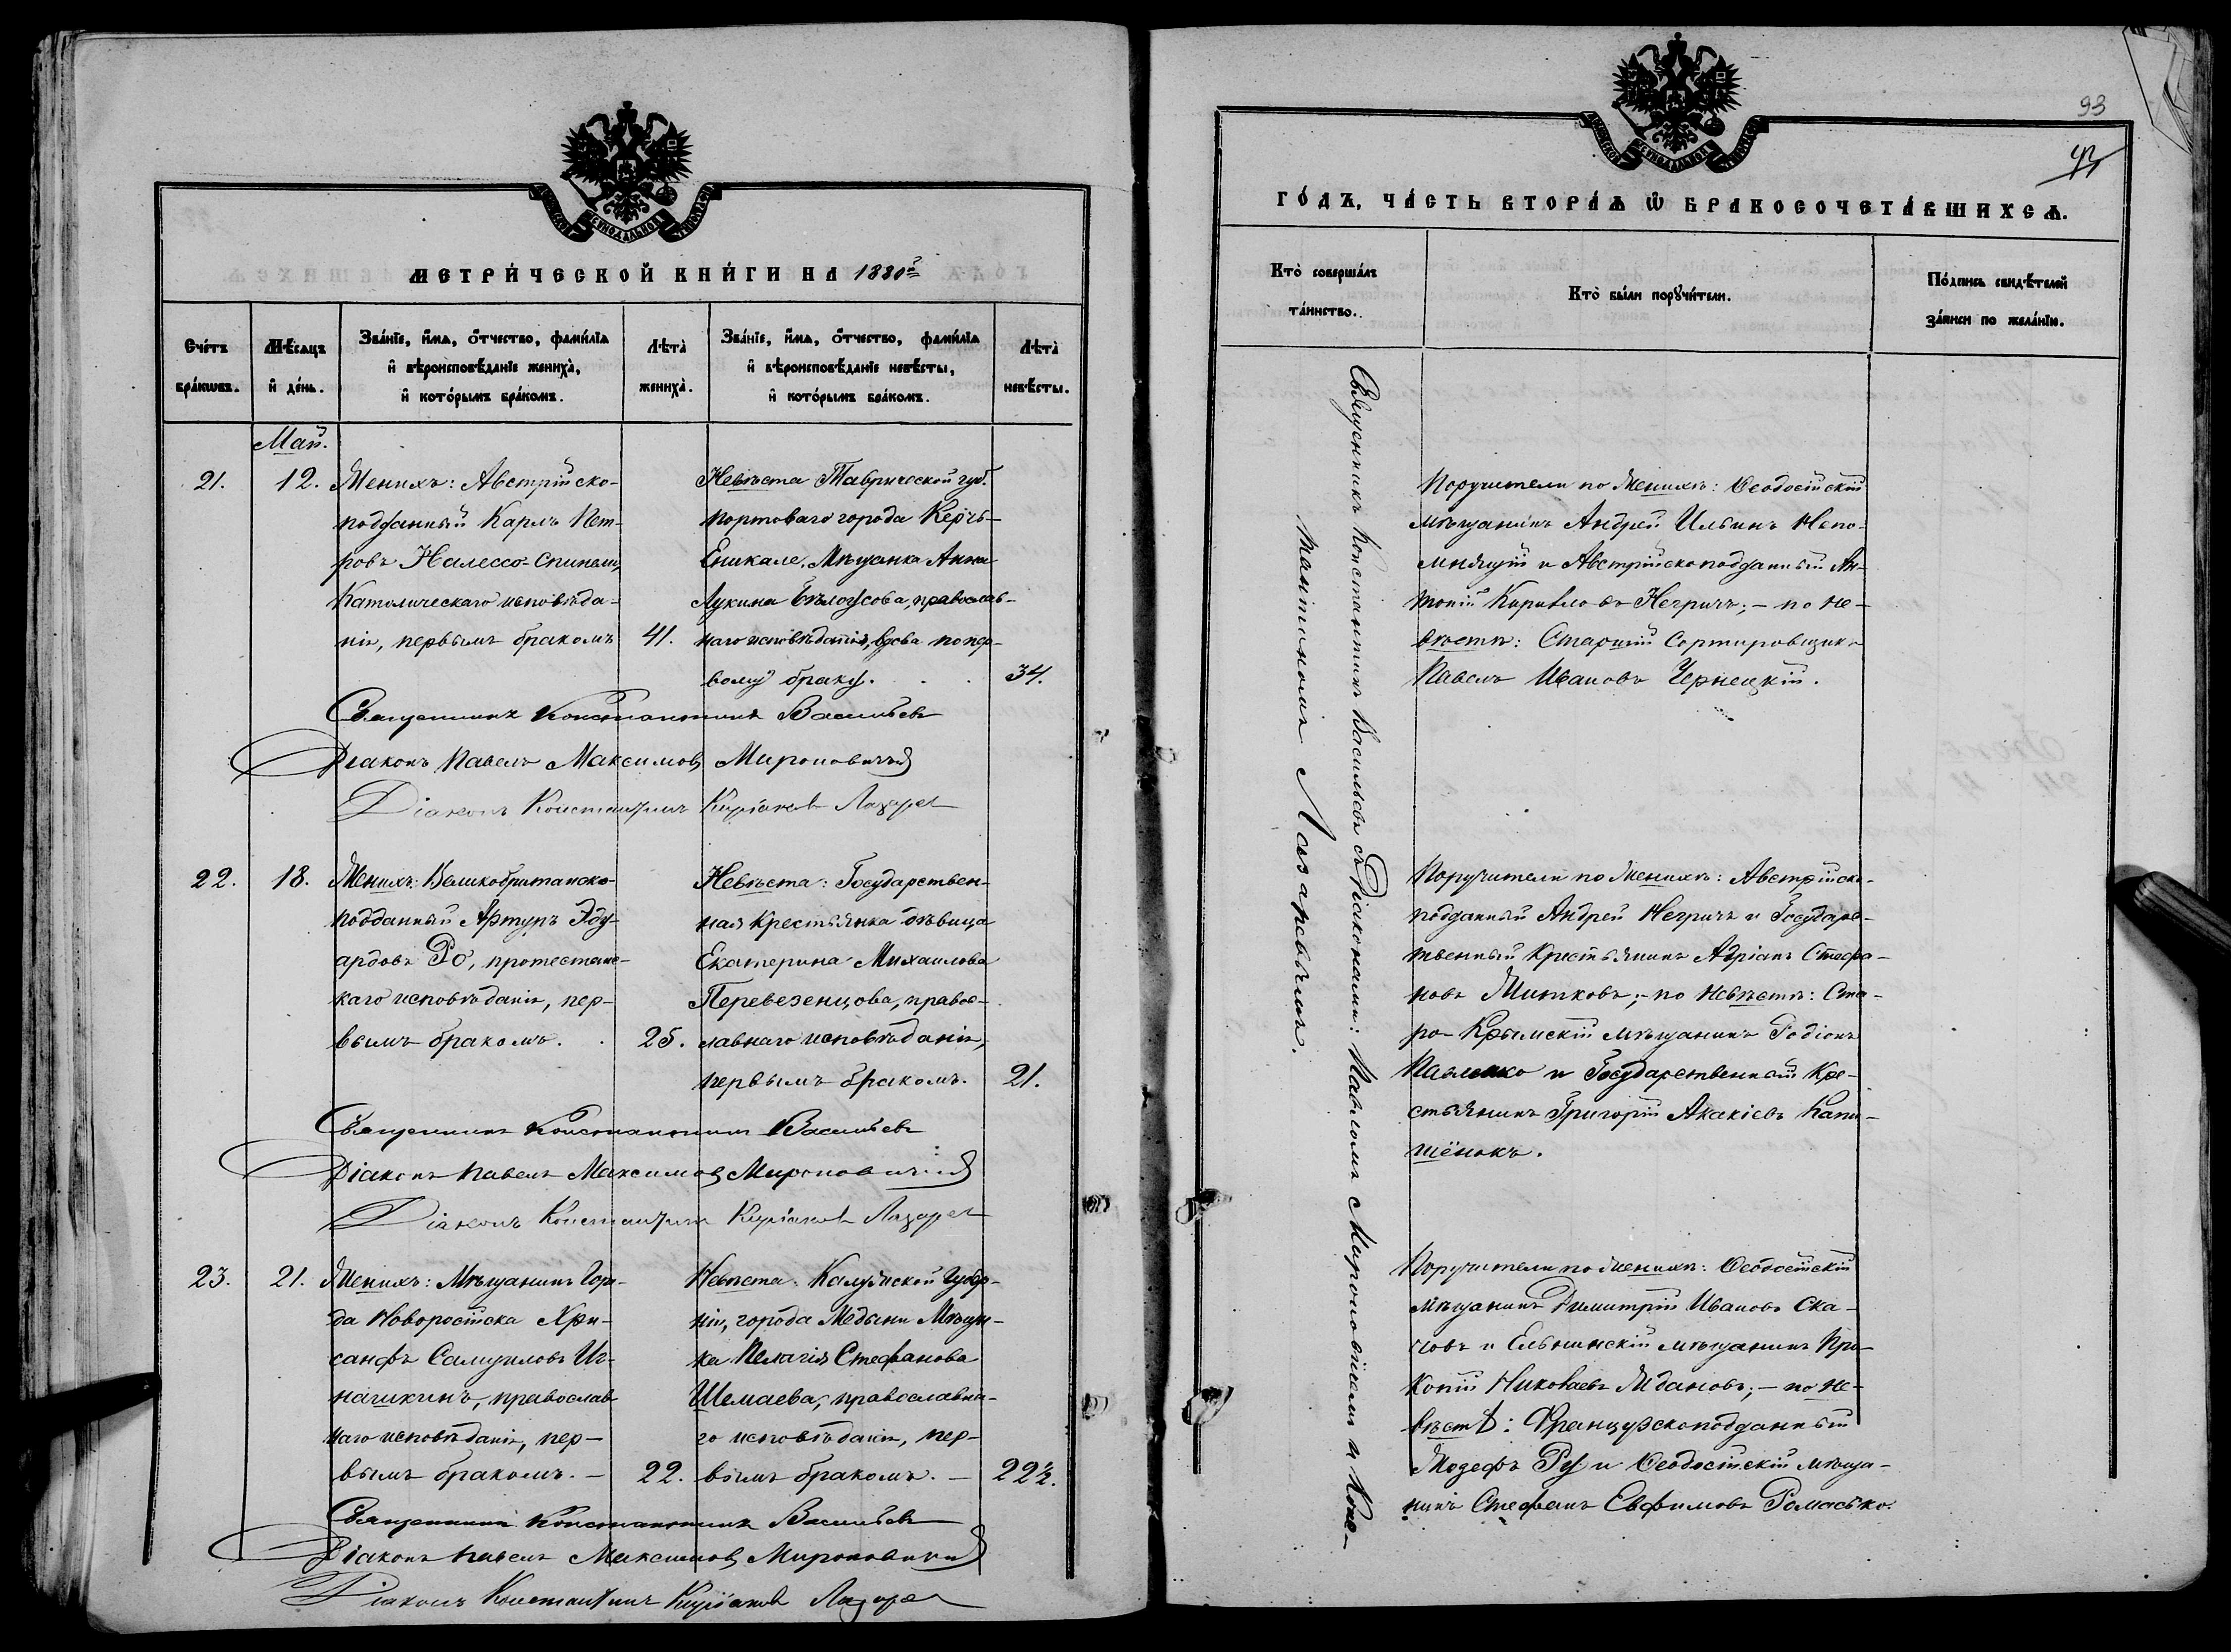 МЕТРИ́ЧЕСКОЙ КНИ́ГИ НА 1880й
Сче́тъ бра́кωвъ.
Мѣ́сяцъ и҆ де́нь.
Зва́нїе, и҆́мѧ, ѻ҆́тчество, фами́лїа
и҆ вѣроисповѣ́данїе жениха̀,
и҆ кото́рымъ бра́комъ.
Лѣта̀ жениха̀.
Зва́нїе, и҆́мѧ, ѻ҆́тчество, фами́лїа
и҆ вѣроисповѣ́данїе невѣ́сты,
и҆ кото́рымъ бра́комъ.
Лѣта̀ невѣ́сты.
Май.
21.
12.
Женихъ: Австрійско-
подданный Карлъ Пет-
ровъ Налессо-Спинели,
Католическаго исповѣда-
нія, первымъ бракомъ
41.
Невѣста Таврической губ.
портоваго города Керчь-
Еникале, Мѣщанка Анна
Лукина Бѣлоусова, православ-
наго исповѣданія, вдова по пер-
вому браку.
34.
Священникъ Константинъ Васильевъ
Діаконъ Павелъ Максимовъ Мироновичъ
Діаконъ Константинъ Киріаковъ Лазарев
22.
18.
Женихъ: Великобританско-
подданный Артуръ Эду-
ардовъ Ро, протестанс-
каго исповѣданія, пер-
вымъ бракомъ.
25.
Невѣста: Государствен-
ная крестьянка дѣвица
Екатерина Михаилова
Перевезенцова, правос-
лавнаго исповѣданія,
первымъ бракомъ.
21.
Священникъ Константинъ Васильевъ
Діаконъ Павелъ Максимовъ Мироновичъ
Діаконъ Константинъ Киріаковъ Лазарев
23.
21.
Женихъ: Мѣщанинъ Горо-
да Новоросійска Хри-
санфъ Самуиловъ Иг-
нашкинъ, православ-
наго исповѣданія, пер-
вымъ бракомъ. -
22.
Невѣста: Калужской Губер-
ніи, города Медыни Мѣщан-
ка Пелагія Стефанова
Шемаева, православна-
го исповѣданія, пер-
вымъ бракомъ. -
22½.
Священникъ Константинъ Васильевъ
Діаконъ Павелъ Максимовъ Мироновичъ
Діаконъ Константинъ Киріаковъ Лазарев
93
ГО́ДЪ, ЧА́СТЬ ВТОРА́Ѧ Ѽ БРАКОСОЧЕТА́ВШИХСѦ.
Кто̀ соверша́лъ
та́инство.
Кто̀ бы́ли порꙋчи́тели.
По́дпись свидѣ́телей
за́писи по жела́нїю.
Священникъ Константинъ Васильевъ съ Діаконами: Павломъ Мироновичемъ и Конс-
тантиномъ Лазаревымъ.
Поручители по Женихѣ: Ѳеодосійскій
мѣщанинъ Андрей Ильинъ Непо-
мнящій и Австрійскоподданный Ан-
тоній Кириловъ Негричъ; - по не-
вѣстѣ: Старшій Сортировщикъ
Павелъ Ивановъ Чернецкій.
Поручители по Женихѣ: Австрійско-
подданный Андрей Негричъ и Государс-
твенный Крестьянинъ Адріанъ Стефа-
новъ Митковъ; - по Невѣстѣ: Ста-
ро-Крымскій мѣщанинъ Родіонъ
Павленко и Государственный Кре-
стьянинъ Григорій Акакіевъ Капи-
шёнокъ.
Поручители по Женихѣ: Ѳеодосійскій
мѣщанинъ Димитрій Ивановъ Ска-
човъ и Ельнинскій мѣщанинъ Про-
копій Николаевъ Ждановъ; - по не-
вѣстѣ: Французскоподданный
Жозефъ Ру и Ѳеодосійскій мѣща-
нинъ Стефанъ Евфимовъ Ромасько.